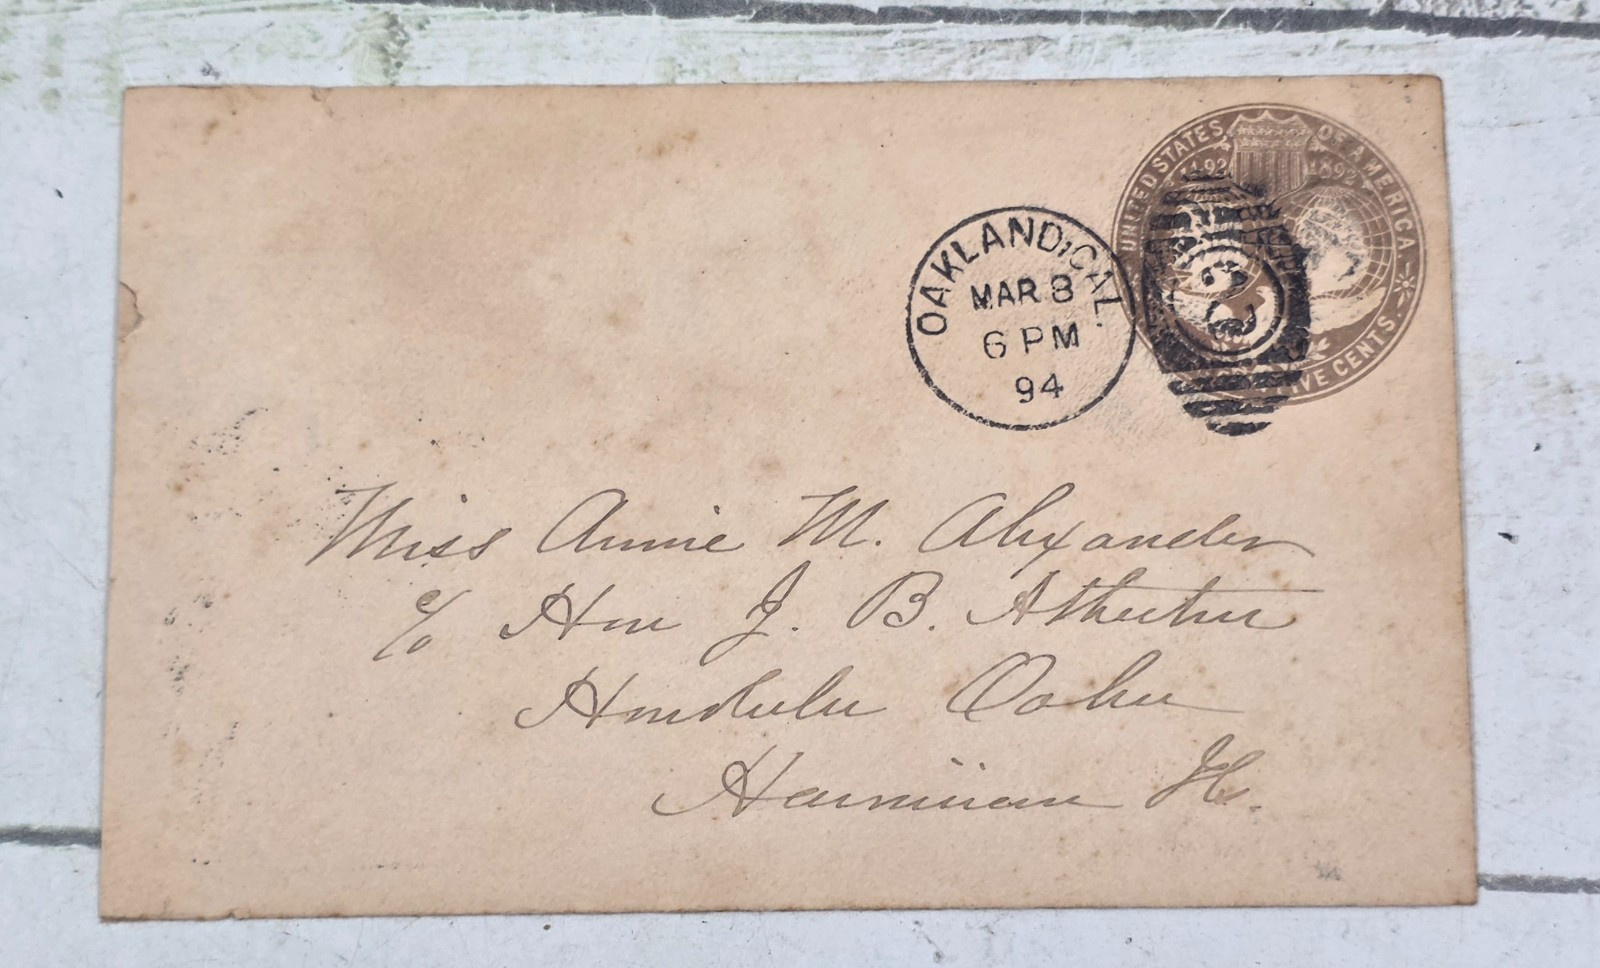 UNITED STATES OF AMERICA
1492 1892
FIVE CENTS.
OAKLAND, CAL.
MAR 8
6 PM
94
2
Miss Annie M. Alexander
c/o Hon J. B. Atherton
Honolulu Oahu
Hawaiian